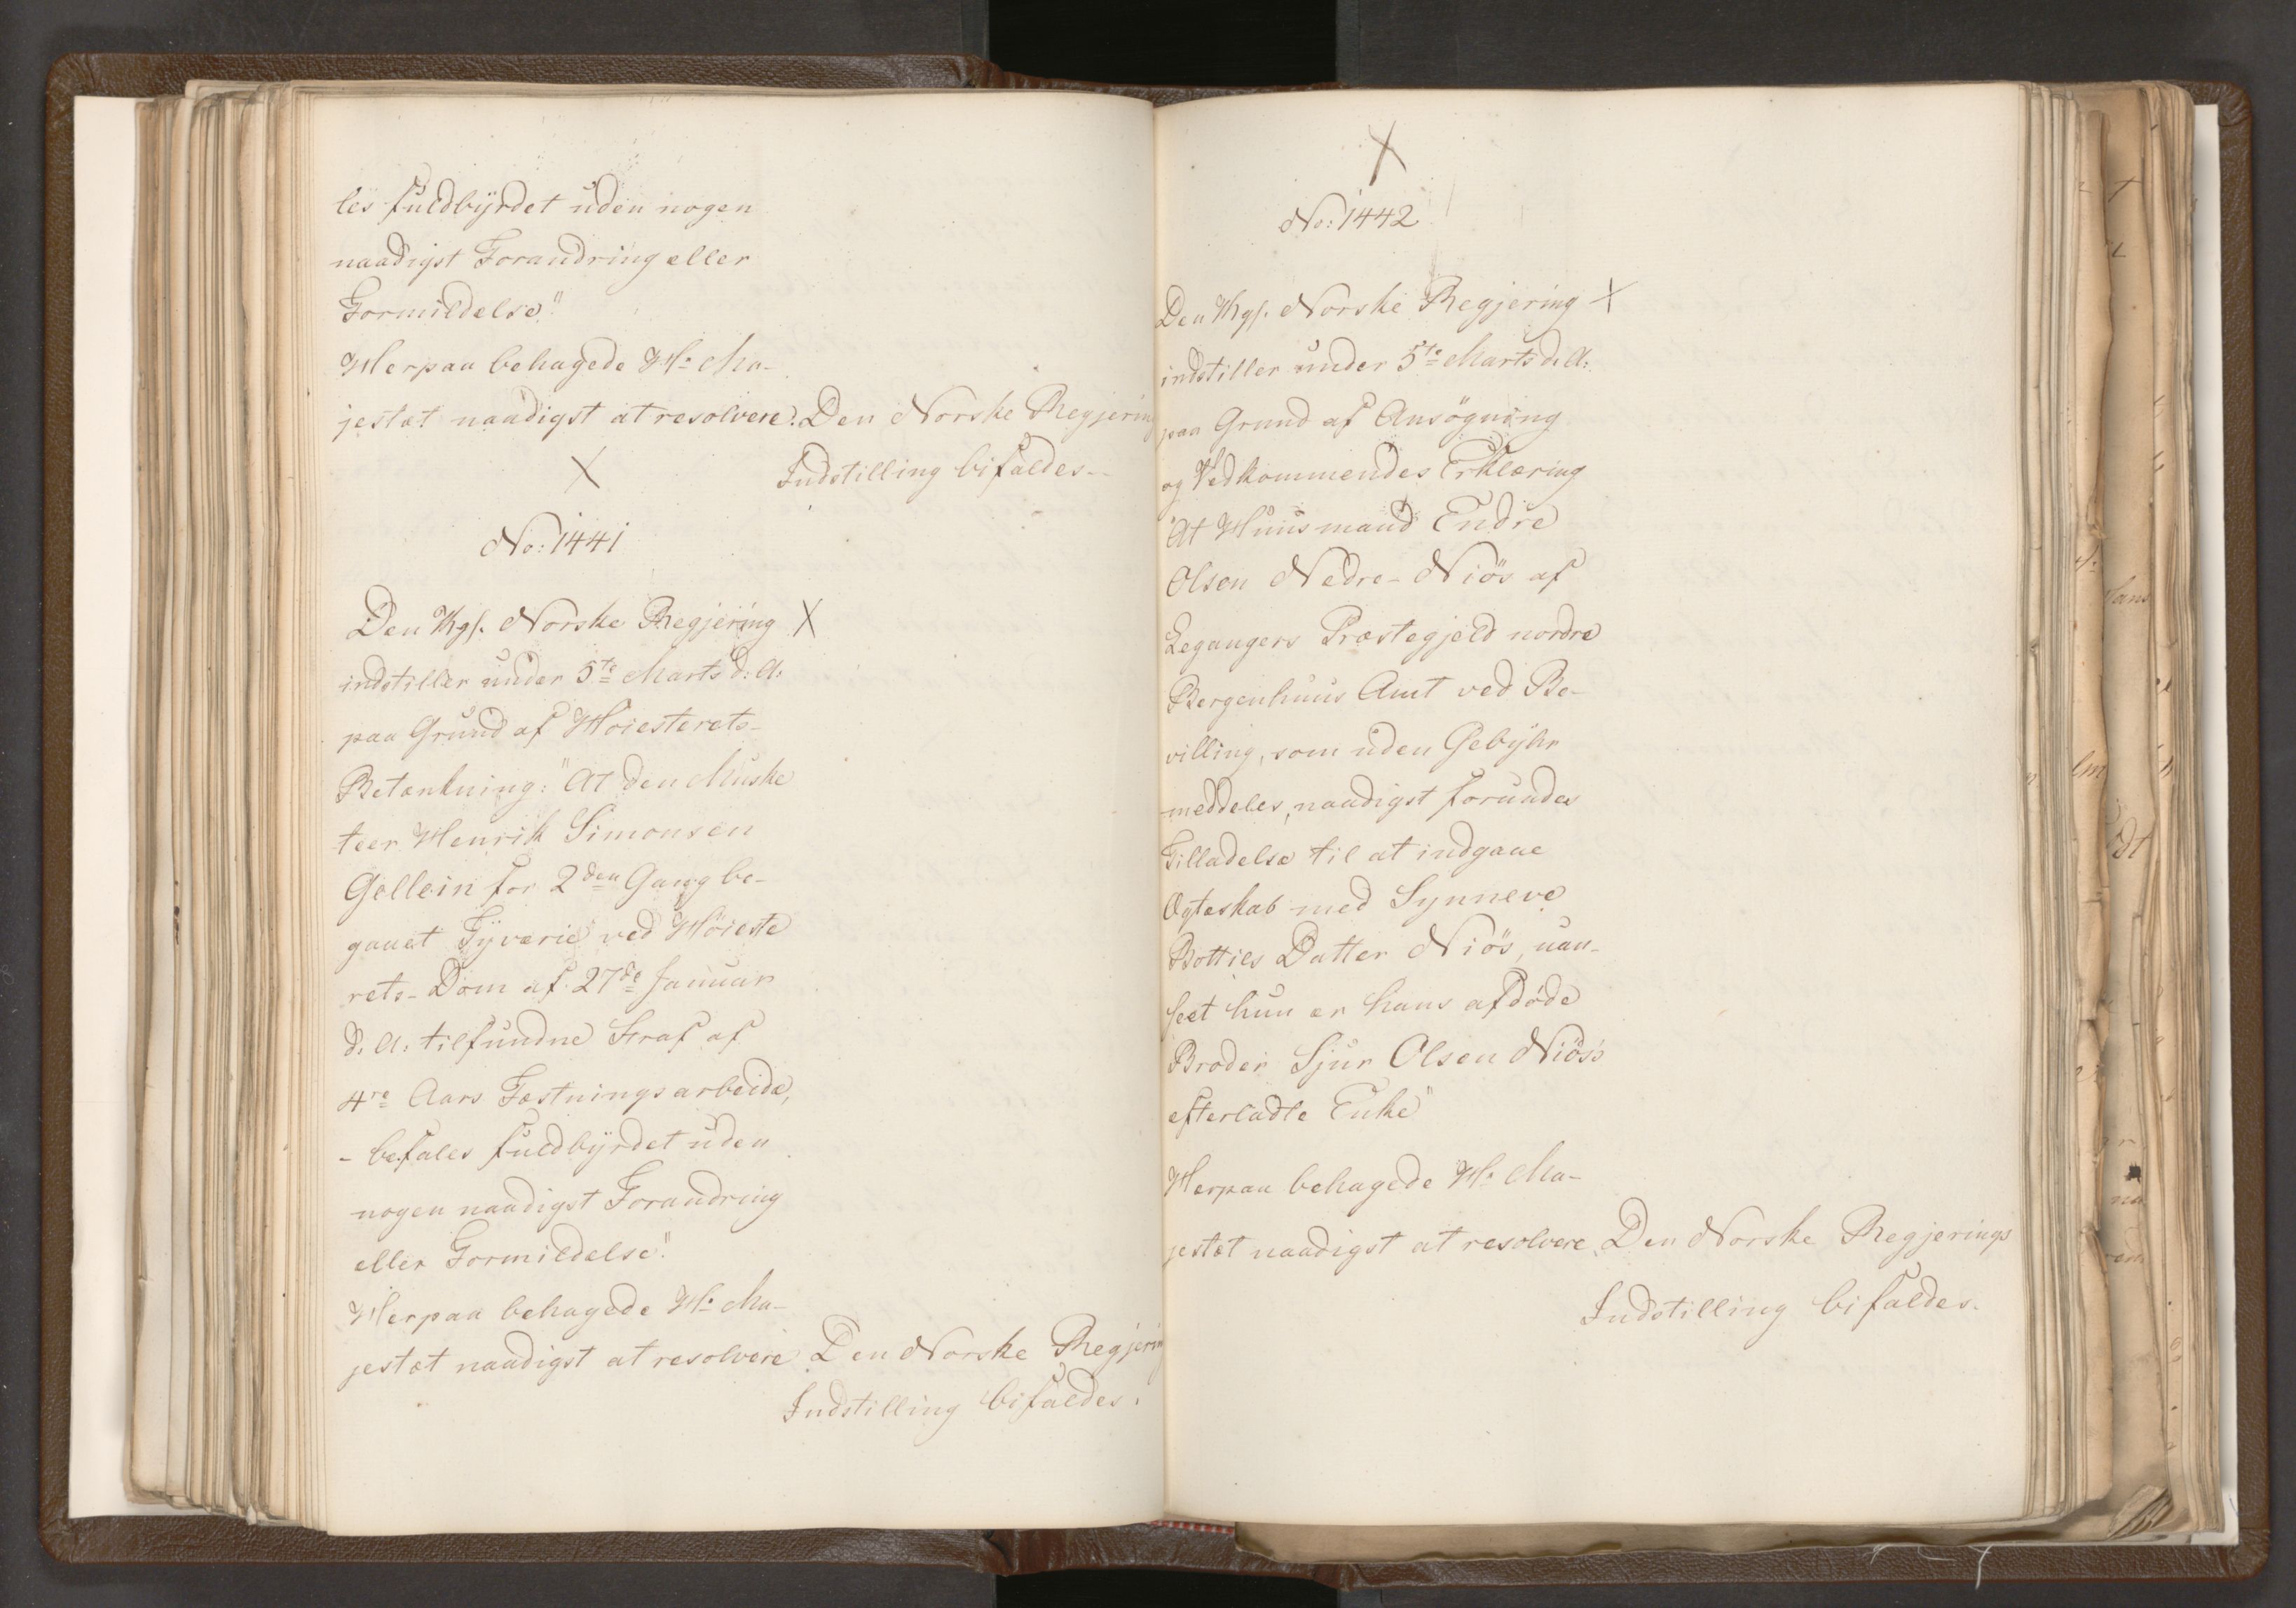 les fuldbÿrdet uden nogen
naadigst Forandring eller
Formildelse."
Herpaa behagede H: Ma-
jestæt naadigst at resolvere: Den Norske Regjering
X
Indstilling bifaldes.-
No: 1441
Den Kgl. Norske Regjering X
indstiller under 5te Marts d: A:
paa Grund af Høiesterets-
Betænkning: "At den Muske
teer Henrik Simonsen
Gellein for 2den Gang be-
gaaet Tÿverie ved Høieste
rets-Dom af 27de Januar
d: A: tilfundne Straf af
4re Aars Fæstningsarbeide,
- befales fuldbÿrdet uden
nogen naadigst Forandring
eller Formildelse."
Herpaa behagede H: Ma-
jestæt naadigst at resolvere Den Norske Regjering
Indstilling bifaldes.
X
No: 1442
Den Kgl. Norske Regjering X
indstiller under 5te Marts d: A:
paa Grund af Ansögning
og Vedkommendes Erklæring
"At Huusmand Endre
Olsen Nedre-Niös af
Legangers Præstegjeld nordre
Bergenhuus Amt ved Be-
villing, som uden Gebÿhr
meddeles, naadigst forundes
Tilladelse til at indgaae
Ægteskab med Synneve
Botties Datter Niös, uan-
seet hun er hans afdöde
Broder Sjur Olsen Niös's
efterladte Enke"
Herpaa behagede H: Ma-
jestæt naadigst at resolvere Den Norske Regjerings
Indstilling bifaldes.